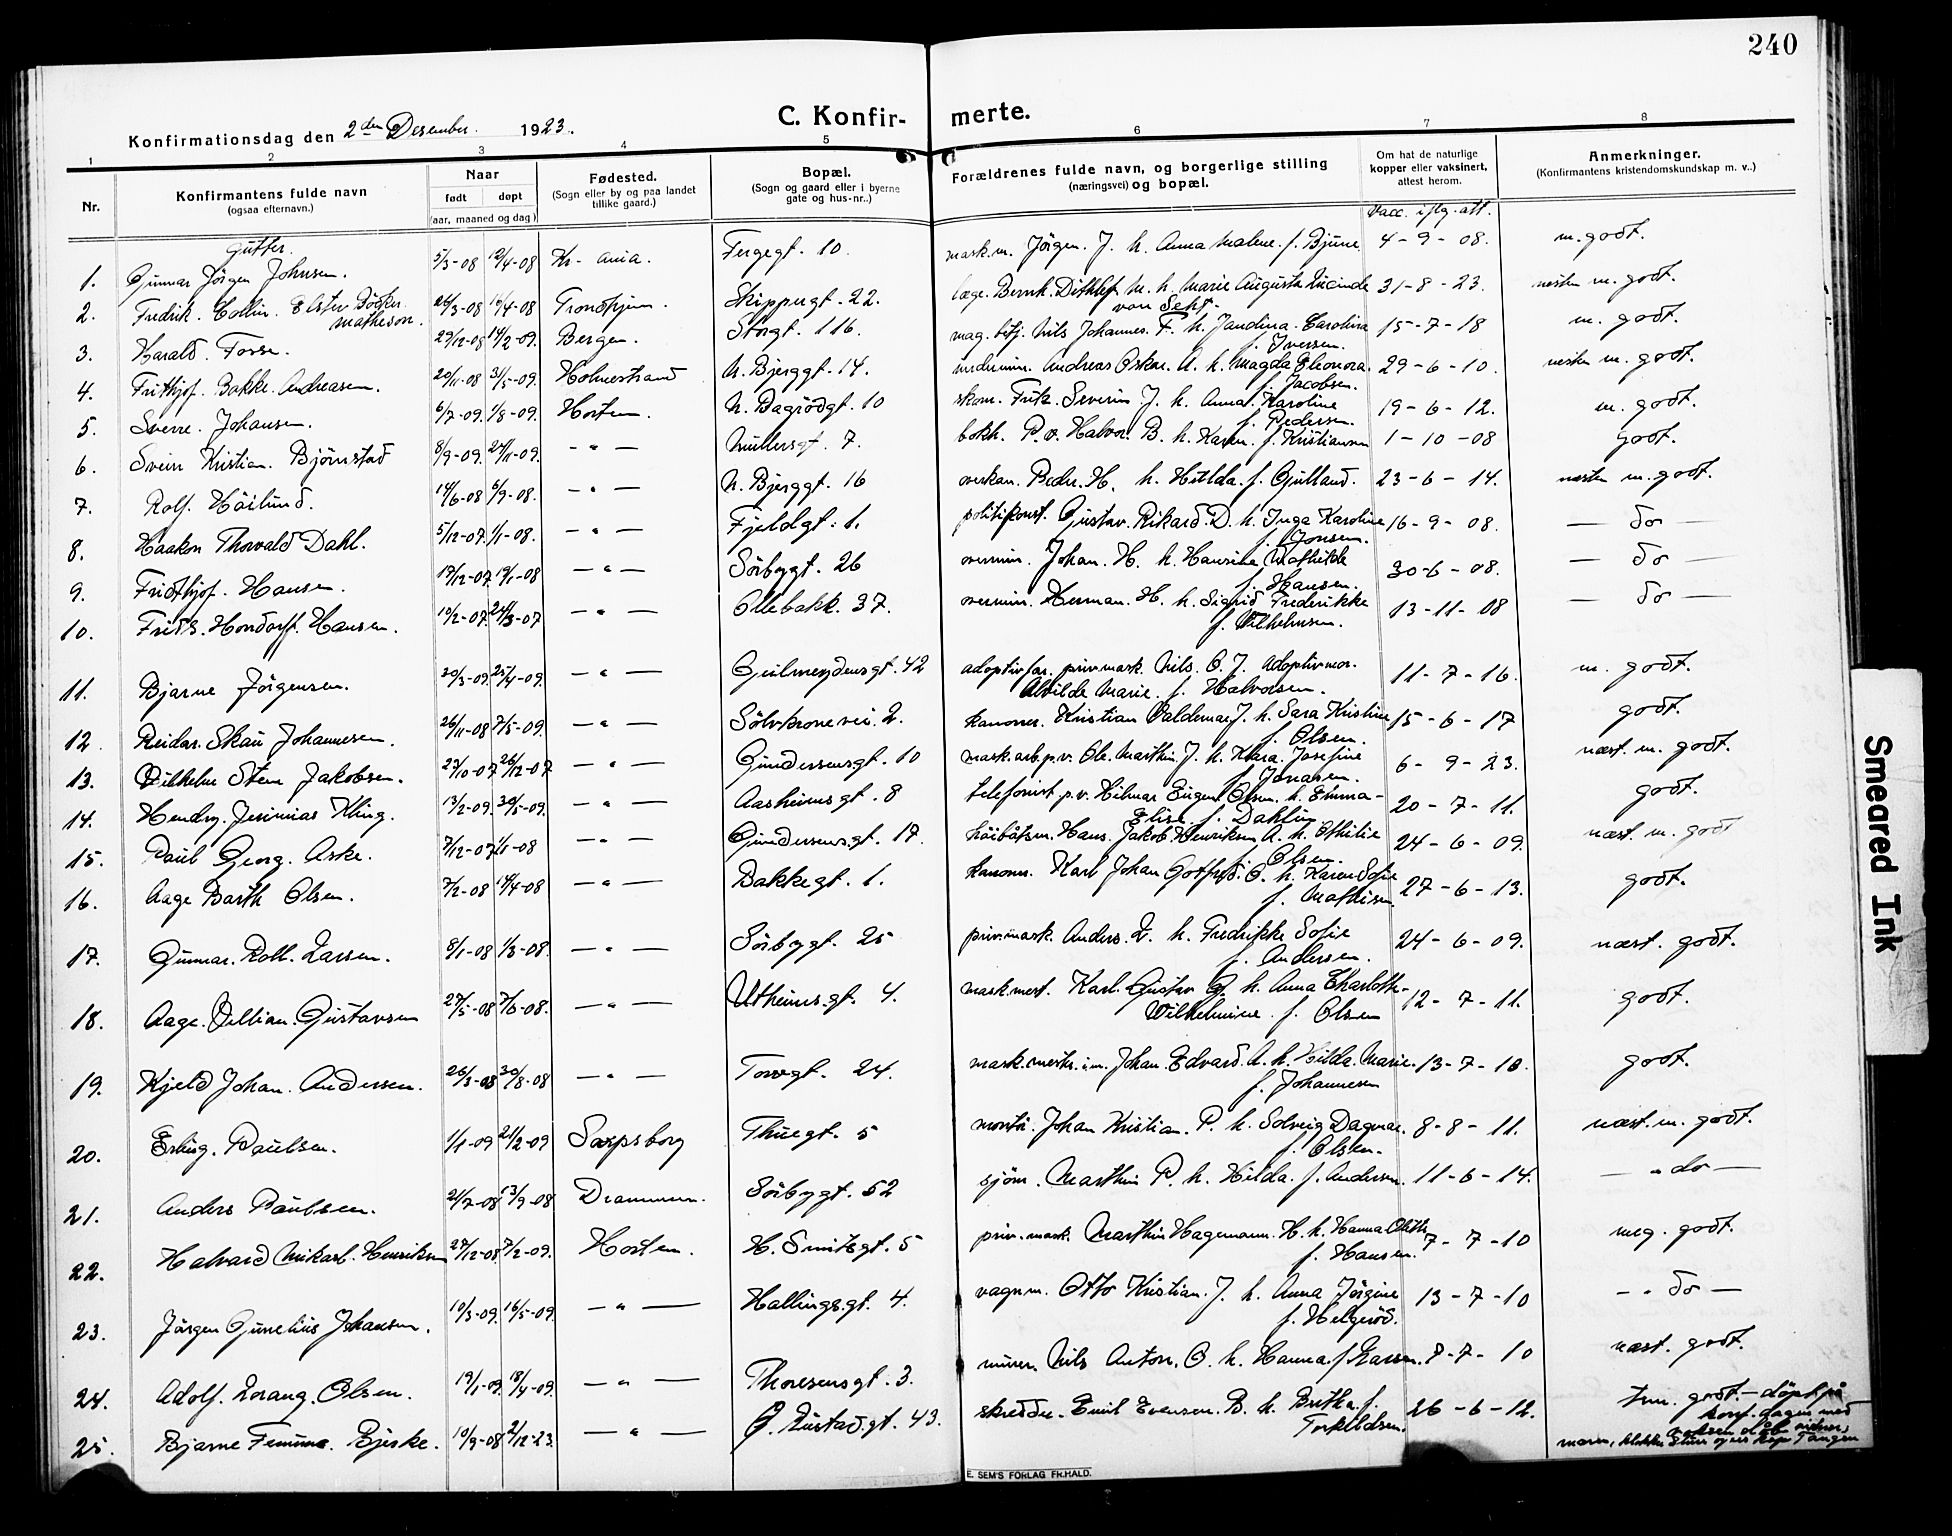 240
Konfirmationsdag den 2den Desember 1923.
C. Konfir- merte.
1 2 3 4 5 6 7 8
Nr.
Konfirmantens fulde navn
(ogsaa efternavn.)
Naar
født døpt
(aar, maaned og dag)
Fødested.
(Sogn eller by og paa landet
tillike gaard.)
Bopæl.
(Sogn og gaard eller i byerne
gate og hus-nr..)
Forældrenes fulde navn, og borgerlige stilling
(næringsvei) og bopæl.
Om hat de naturlige
kopper eller vaksinert,
attest herom.
Anmerkninger.
(Konfirmantens kristendomskundskap m. v.)
Vacc. iflg. att.
Gutter.
1. Gunnar Jörgen Johnsen. 5/3-08 12/4-08 Kr-ania. Fergegt. 10 mask.m. Jörgen. J. h. Anna Malene. f. Bjune 4-9-08. m. godt.
2. Fredrik. Collin. Elster Bödker 26/3-08 16/4-08 Trondhjem. Skippergt. 22. læge. Bernh. Dithlef M. h. Marie Augusta Lucinde 31-8-23. nesten m. godt.
Matheson. von Seht.
3. Harald. Fosse. 29/12-08 14/2-09. Bergen. Storgt. 116. mag. betj. Nils Johannes. F. h. Jandina. Carolina 15-7-18 m. godt.
f. Iversen.
4. Frithjof. Bakke. Andreasen. 20/11-08 31/5-09. Holmestrand N. Bjerggt. 14. underminr. Andreas Oskar. A. h. Magda Eleonora. 29-6-10. nesten m. godt.
f. Jacobsen.
5. Sverre. Johansen. 6/7-09. 1/8-09. Horten. N. Bagrödgt. 10 skom. Fritz. Severin J. h. Anna. Karoline 19-6-12. m. godt.
f. Pedersen.
6. Svein Kristian. Björnstad 8/9-09. 24/11-09. - " - Mullersgt. 7. bokh. P. v. Halvor. B. h. Karen. f. Kristiansen 1-10-08 godt.
7. Rolf. Höilund. 14/6-08 6/9-08. - " - N. Bjerggt. 16 overkan. Peder. H. h. Hilda. f. Gulland. 23-6-14. nesten m. godt.
8. Haakon Thorvald Dahl. 5/12-07. 1/1-08. - " - Fjeldgt. 1. politikonst. Gustav. Rikard. D. h. Inga Karoline 16-9-08. - do -
f. Jonsen.
9. Fridthjof. Hansen. 17/12-07. 19/1-08 - " - Sörbygt. 26 overmin. Johan. H. h. Hansine Mathilde 30-6-08. - do -
f. Hansen.
10. Fridtz. Hondorff. Hansen. 10/2-07. 24/3-07 - " - Ollebakk. 37. overminr. Herman. H. h. Sigrid Frederikke 13-11-08 - do -
f. Vilhelmsen.
11. Bjarne Jörgensen. 30/3-09. 25/4-09. - " - Gulmeydensgt. 42 adoptivfar. priv.mark. Nils. O. J. Adoptivmor. 11-7-16. m. godt.
Alvilde Marie. f. Halvorsen.
12. Reidar. Skau Johannesen. 26/11-08 7/5-09. - " - Sölvkronevei. 2. kanoner. Kristian Valdemar J. h. Sara Kristine 15-6-17 godt.
f. Olsen.
13. Vilhelm Sten Jakobsen. 27/10-07 26/12-07 - " - Gundersensgt. 10 mask.arb. p.v. Ole. Marthin. J. h. Klara. Josefine 6-9-23. næst. m. godt.
f. Jonasen.
14. Hendry. Jerimias Kling. 13/2-09. 30/5-09. - " - Aasheimsgt. 8 telefonist p.v. Hilmar Eugen Olsen. h. Emma- 20-7-11. godt.
Elise. f. Dahlin
15. Paul Georg. Aske. 7/12-07 1/1-08 - " - Gundersens.gt. 17. höibåtsm. Hans. Jakob Henriksen A. h. Othilie 24-6-09. næst. m. godt
f. Olsen.
16. Aage Barth Olsen. 7/2-08 19/4-08 - " - Bakkegt. 1. kanoner. Karl Johan Gotfred. O. h. Karen Sofie 27-6-13. godt.
f. Mathisen.
17. Gunnar. Rolf. Larsen. 8/1-08 1/3-08. - " - Sörbygt. 25 priv.mark. Anders. L. h. Fredrikke Sofie 24-6-09. næst. godt.
f. Andersen.
18. Aage. Villian. Gustavsen 27/5-08 7/6-08. - " - Utheimsgt. 4. mask.mest. Karl. Gustav G. h. Anna Charlotte- 12-7-11. godt.
Wilhelmine. f. Olsen
19. Kjeld Johan. Andersen. 26/3-08 30/8-08 - " - Torvgt. 24. mask.mestr. i.m. Johan. Edvard. A. h. Hilda. Marie. 13-7-10. godt.
f. Johannesen
20. Erling. Paulsen. 1/1-09 21/2-09 Sarpsborg Thuegt. 5 montör. Johan Kristian. P. h. Solveig Dagmar. 8-8-11. næst. m. godt.
f. Olsen.
21. Anders Paulsen. 21/7-08 13/9-08 Drammen. Sörbygt. 52 sjöm. Marthin P. h. Hilda. f. Andersen. 11-6-14. - " do -
22. Halvard Mikael. Henriksen 27/12-08 7/2-09. Horten. H. Smitsgt. 5 priv.mark. Marthin Hagemann. H. h. Hanna Olette 7-7-10 meg. godt.
f. Hansen.
23. Jörgen Gunelius Johansen. 10/3-09. 16/5-09. - " - Hallingsgt. 4. vagnm. Otto Kristian. J. h. Anna Jörgine 13-7-10 - " do -
f. Helgeröd.
24. Adolf. Lorang. Olsen. 19/1-09. 18/4-09. - " - Thoresensgt. 3. murer. Nils Anton. O. h. Hanna. f. Larsen. 8-7-10 næst. godt.
25. Bjarne Femma. Bjerke. 10/9-08 2/12-23. - " - Ö. Rustad.gt. 43. skredder. Emil Evensen. B. h. Bertha. f. 26-6-12. Tem. godt. - döpt på
Torkildsen. konf. dagen med
voksen dåb
E. SEM'S FORLAG FR.HALD.
Smeared Ink